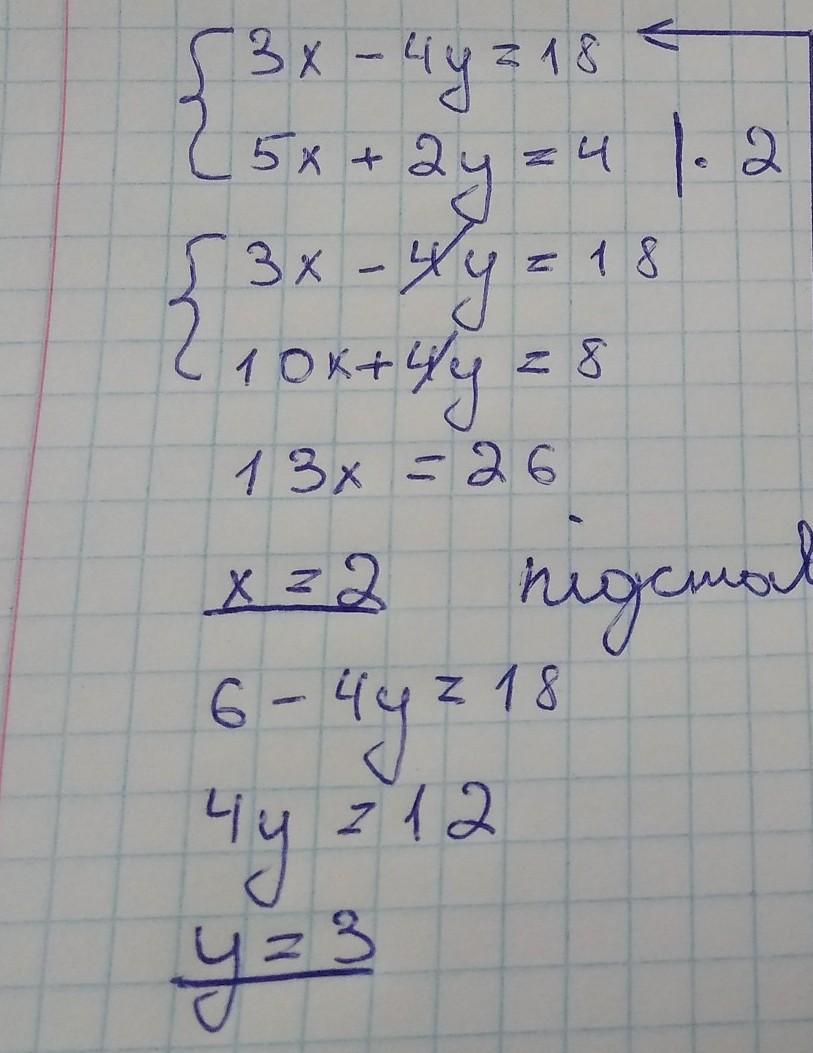 3x - 4y = 18
5x + 2y = 4 | · 2
3x - 4y = 18
10x + 4y = 8
13x = 26
x = 2 підстав
6 - 4y = 18
4y = 12
y = 3